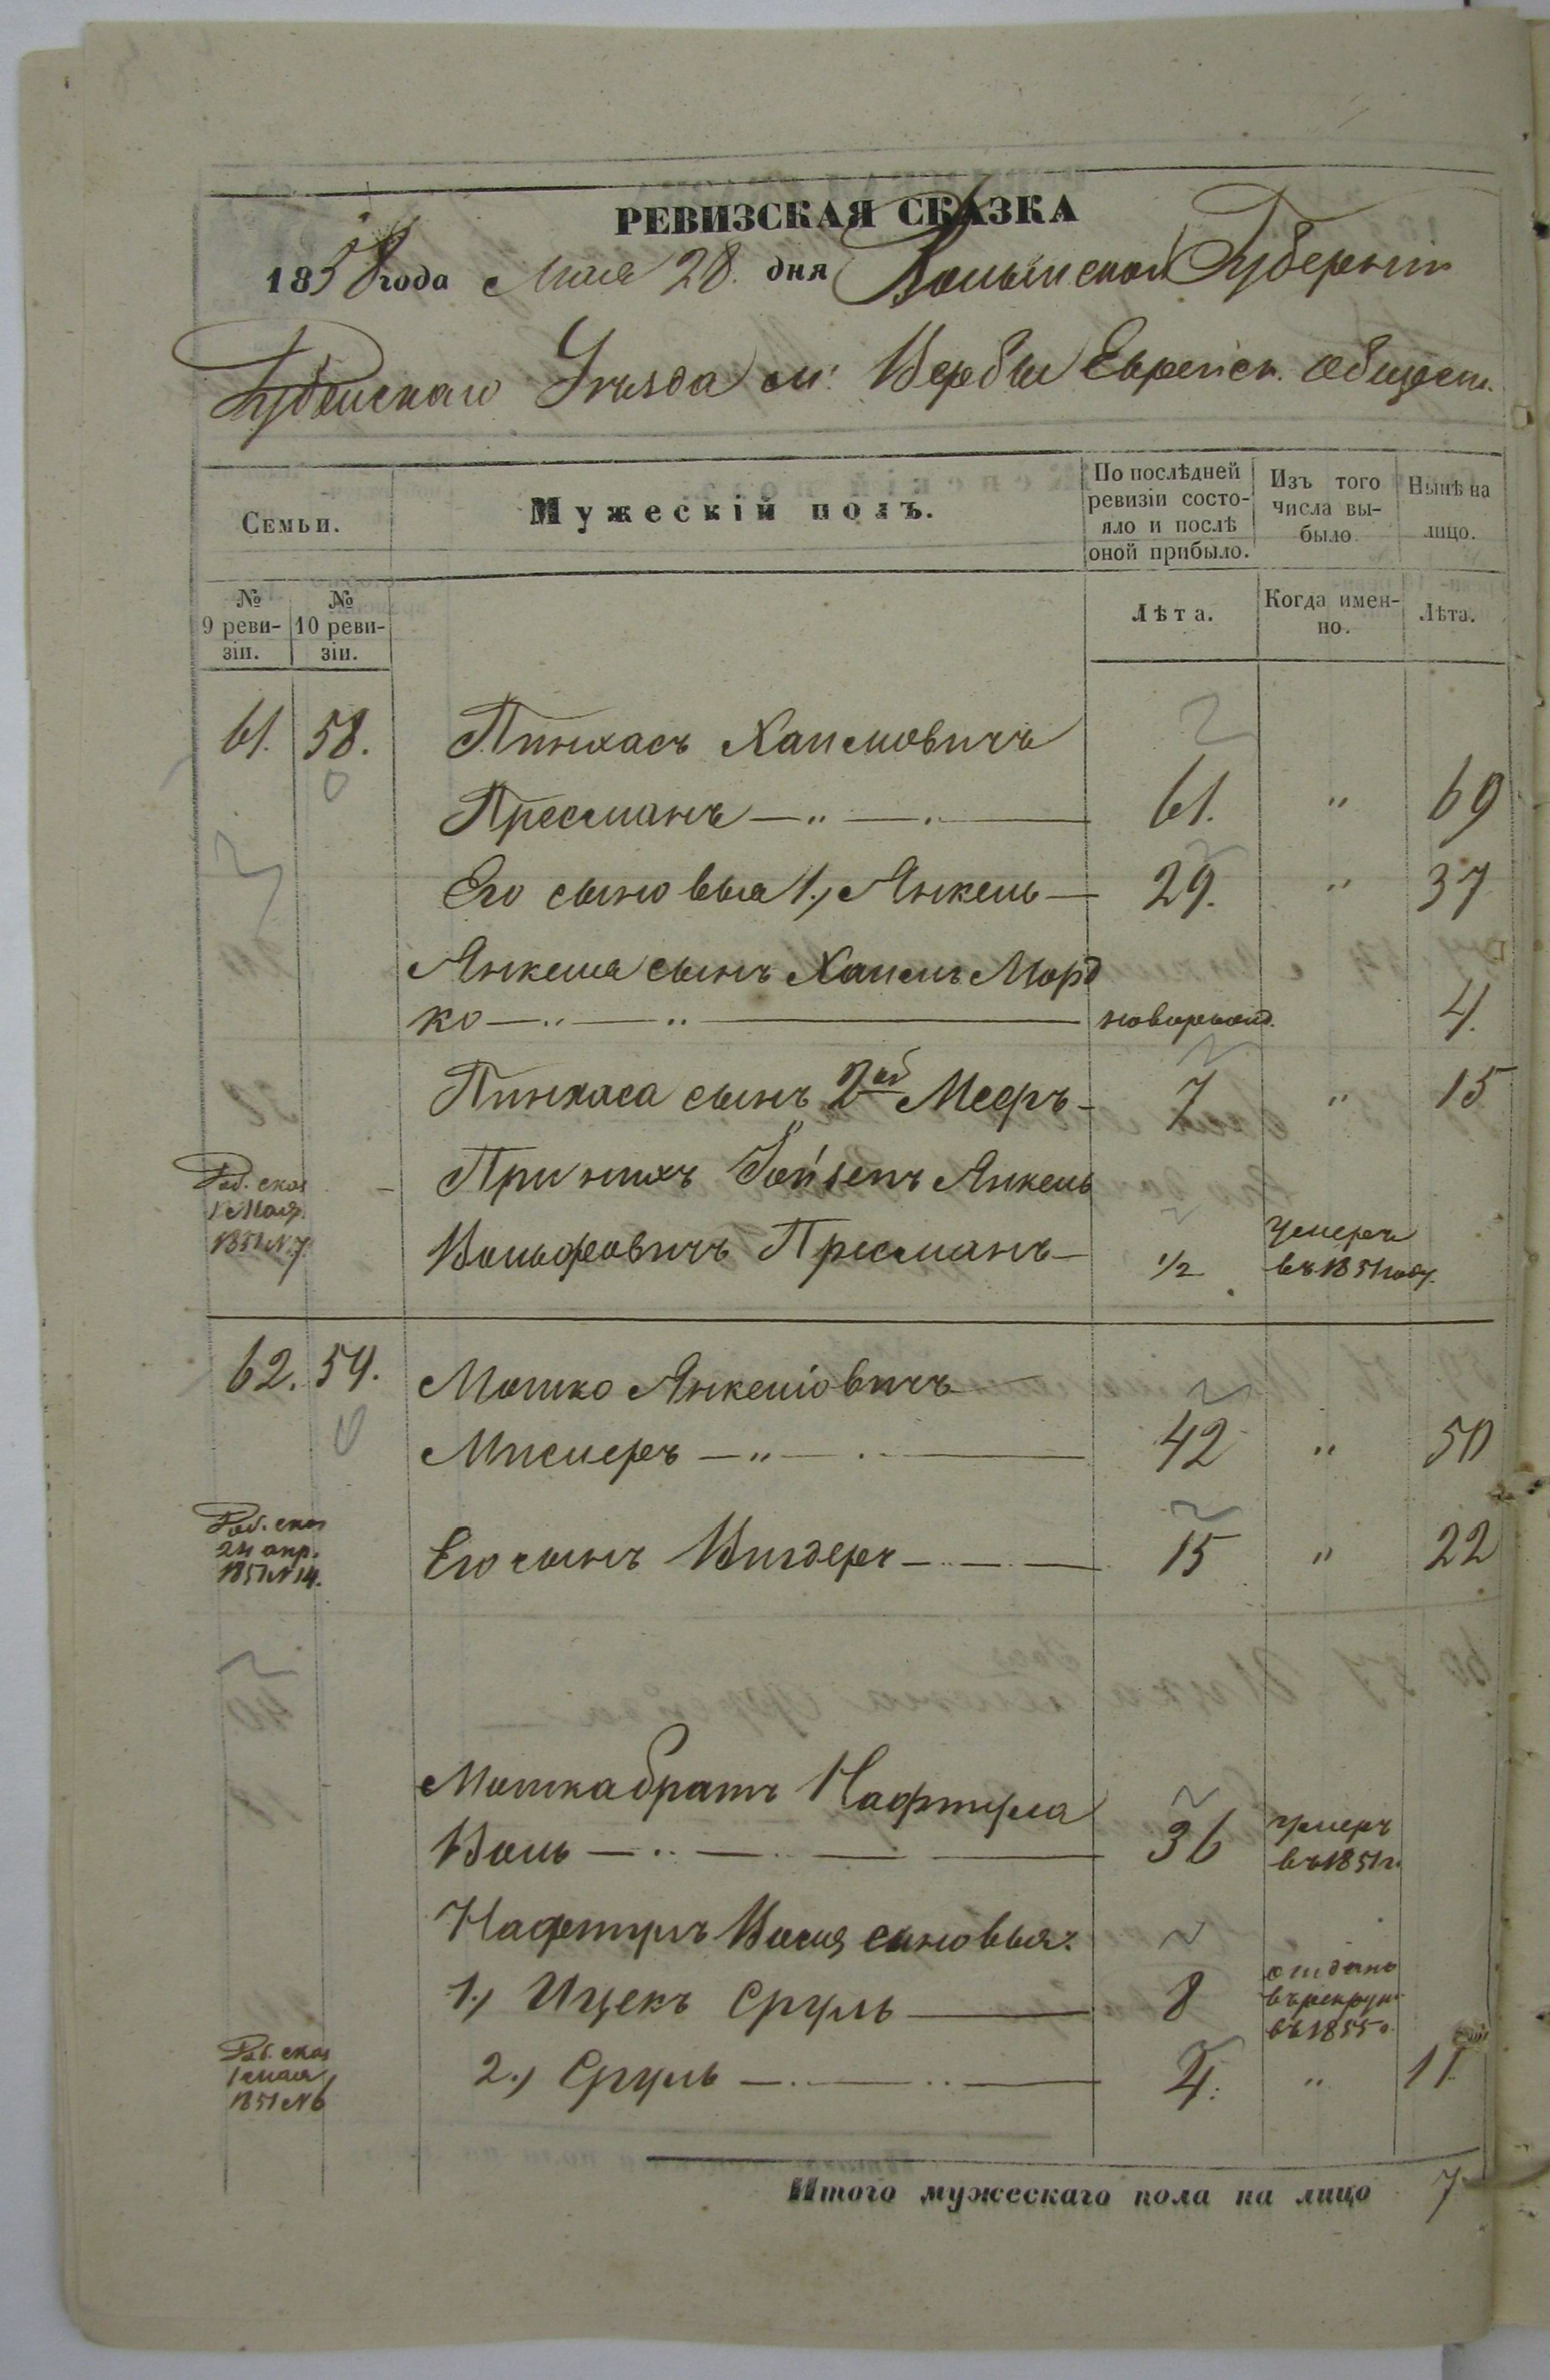 РЕВИЗСКАЯ СКАЗКА
1858 года Мая 28. дня Волынской Губернии
Дубенскаго Уѣзда м: Вербы Еврейск. общест.
Семьи.
Мужескій полъ.
По послѣдней ревизіи состояло и послѣ оной прибыло.
Изъ того числа выбыло.
Нынѣ на лицо.
№ 9 ревизіи.
№ 10 ревизіи.
Лѣта.
Когда именно.
Лѣта.
61. 58. Пинхасъ Хаимовичъ
Пресманъ 61. " 69
Его сыновья 1., Янкель 29. " 37
Янкеля сынъ Хаимъ Морд
ко новорожд. 4.
Пинхаса сынъ 2ой Мееръ 7 " 15
При нихъ Іойсепъ Янкель
Вольфовичъ Пресманъ 1/2 умеръ въ 1851 году.
Доб. сказ
1 Мая
1851 №7
62. 59. Мошко Янкеліовичъ
Мисмеръ 42 " 50
Доб. сказ
24 апр.
1851 №14.
Его сынъ Вигдеръ 15 " 22
Мошка братъ Нафтула
Воль 36 умеръ въ 1851 г.
Нафтулъ Воля сыновья:
1., Ицекъ Сруль 8 отданъ въ рекрут. въ 1855 г.
Доб. сказ
1 мая
1851 №6
2., Сруль 4. " 11
Итого мужескаго пола на лицо 7